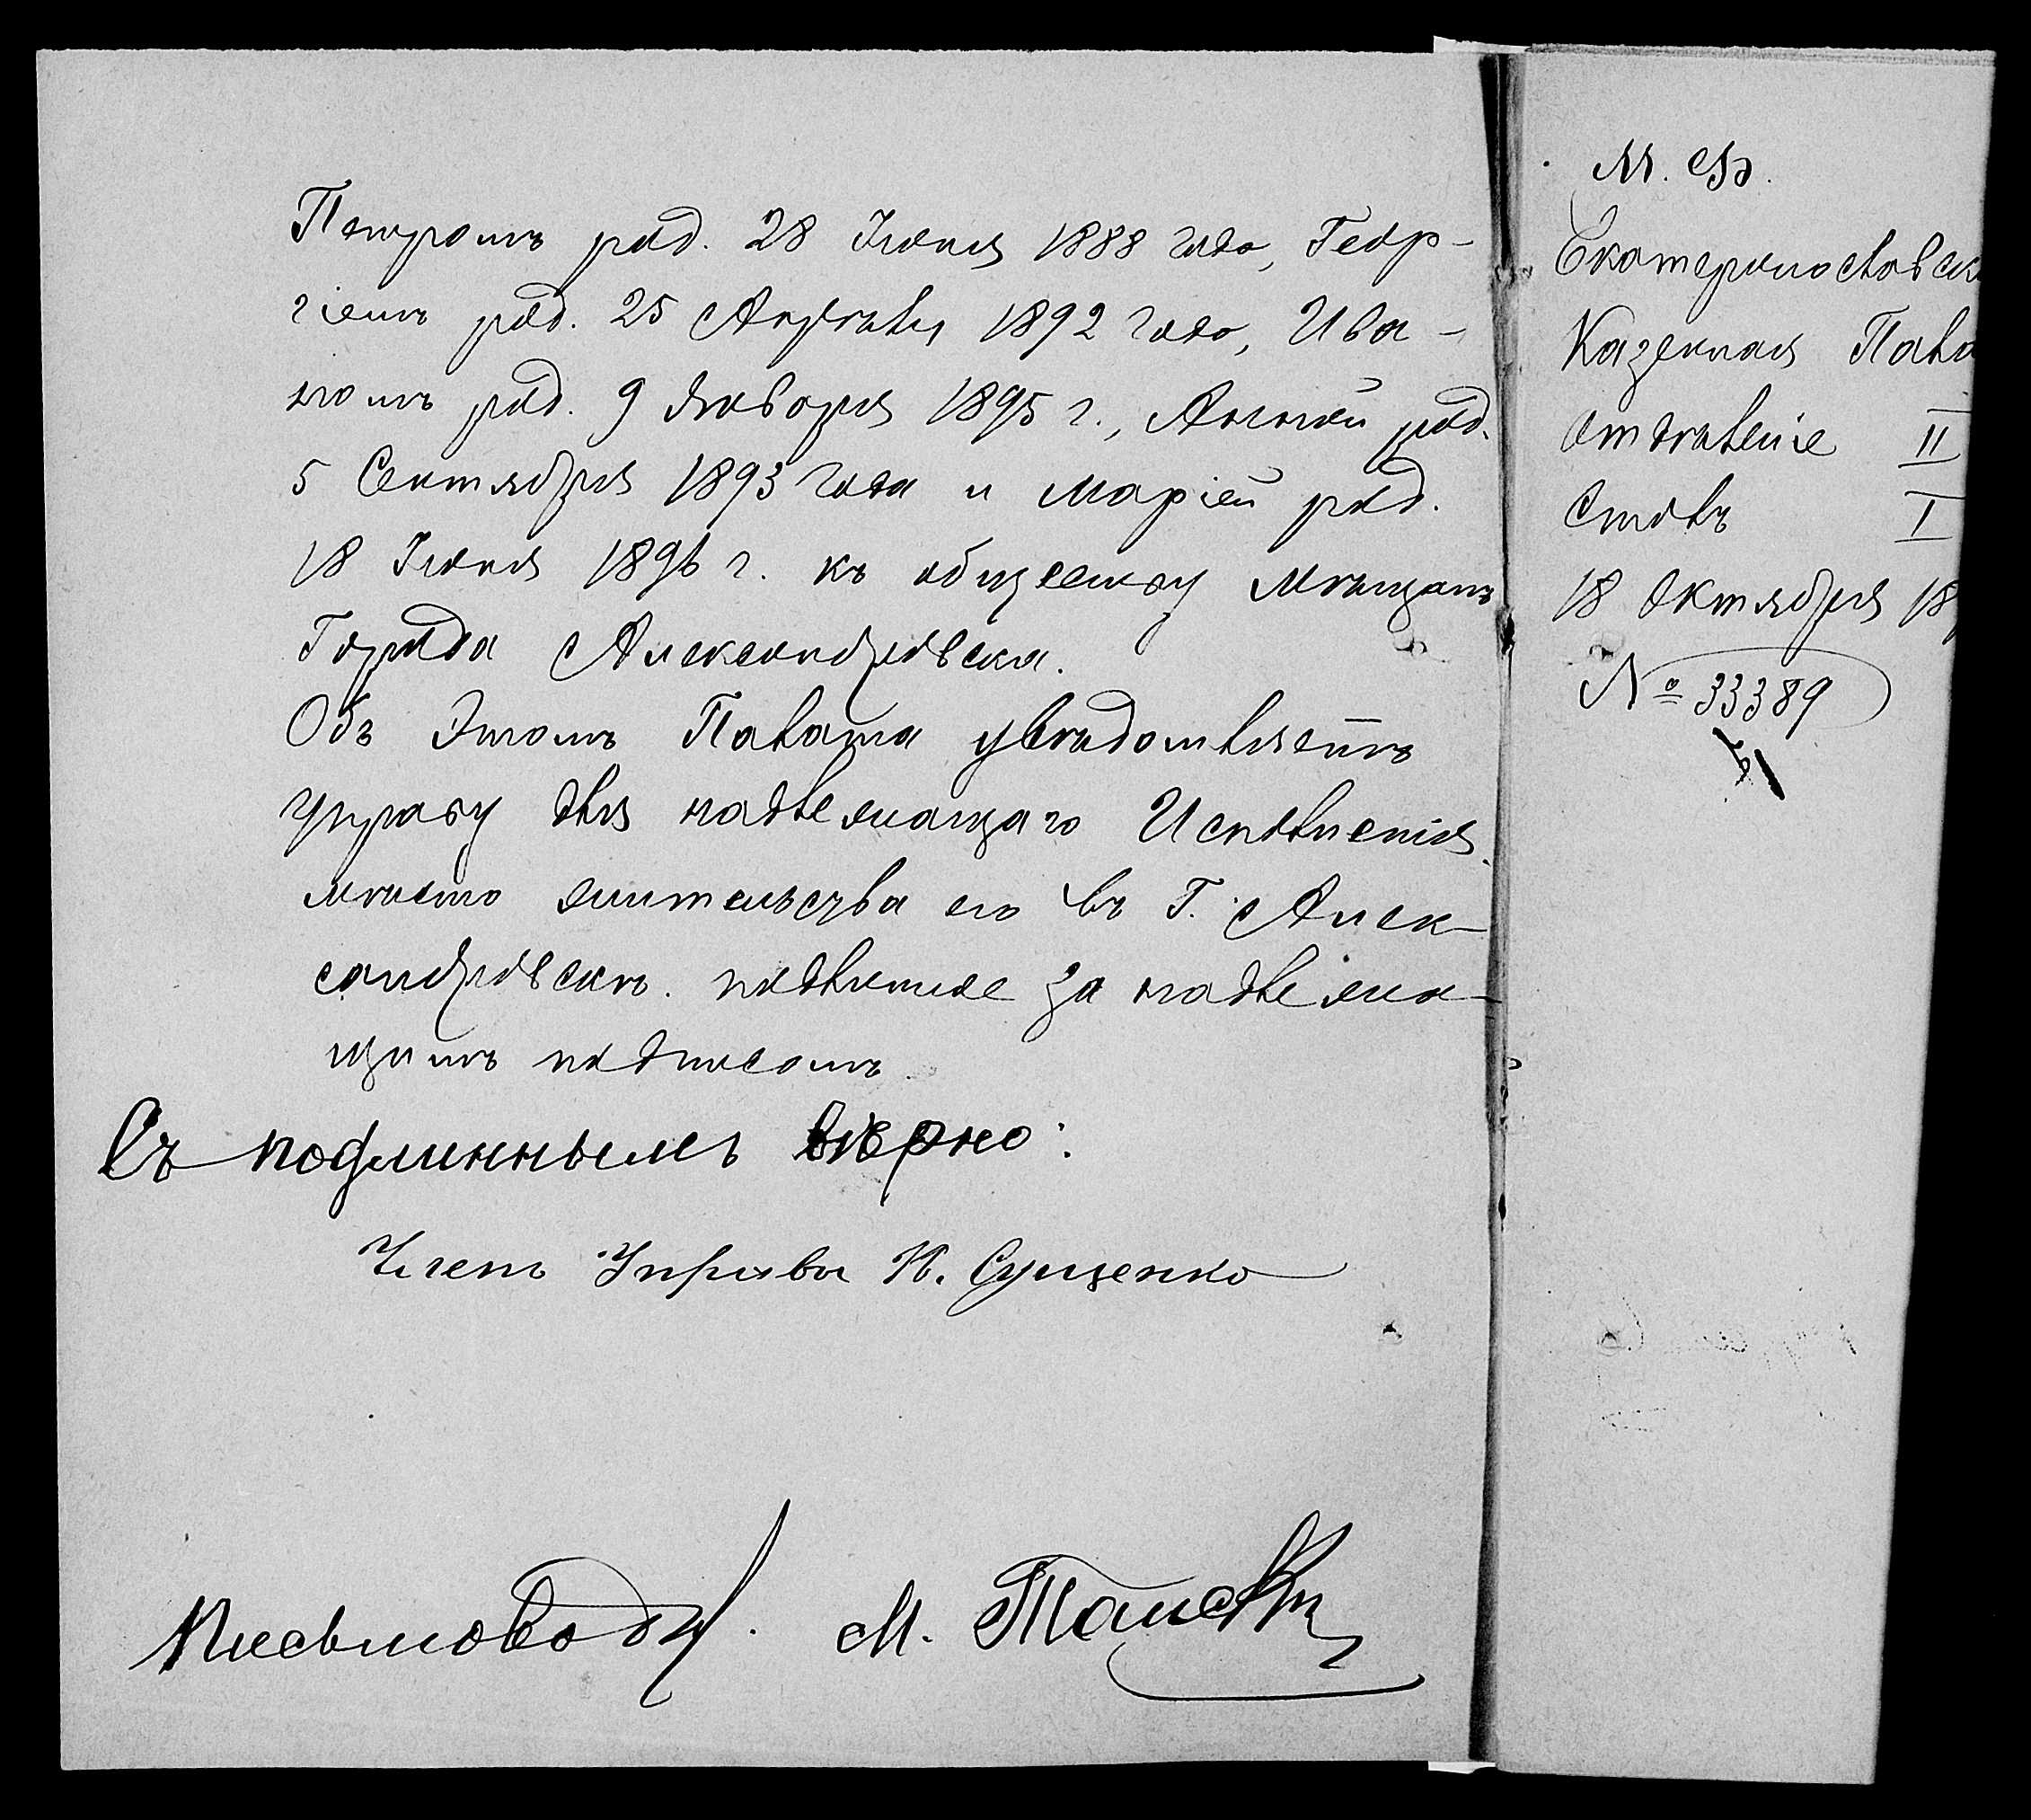 Петромъ род. 28 Іюня 1888 года, Геор-
гіемъ род. 25 Апрѣля 1892 года, Ива-
номъ род. 9 Января 1895 г., Анной род.
5 Сентября 1893 года и Маріей род.
18 Іюня 1896 г. къ обществу Мѣщанъ
Города Александровска.
Объ Этомъ Палата увѣдомляетъ
управу для надлежащаго Исполненія.
мѣсто жительства его въ Г. Алек-
сандровскѣ. подлинное за надлежа-
щимъ подписомъ
Съ подлиннымъ вѣрно:
Членъ Управы Н. Сущенко
Письмовод.
М.
М. Ф.
Екатеринославск
Казенная Пала
Отдѣленіе II
Столъ I
18 Октября 18
№ 33389